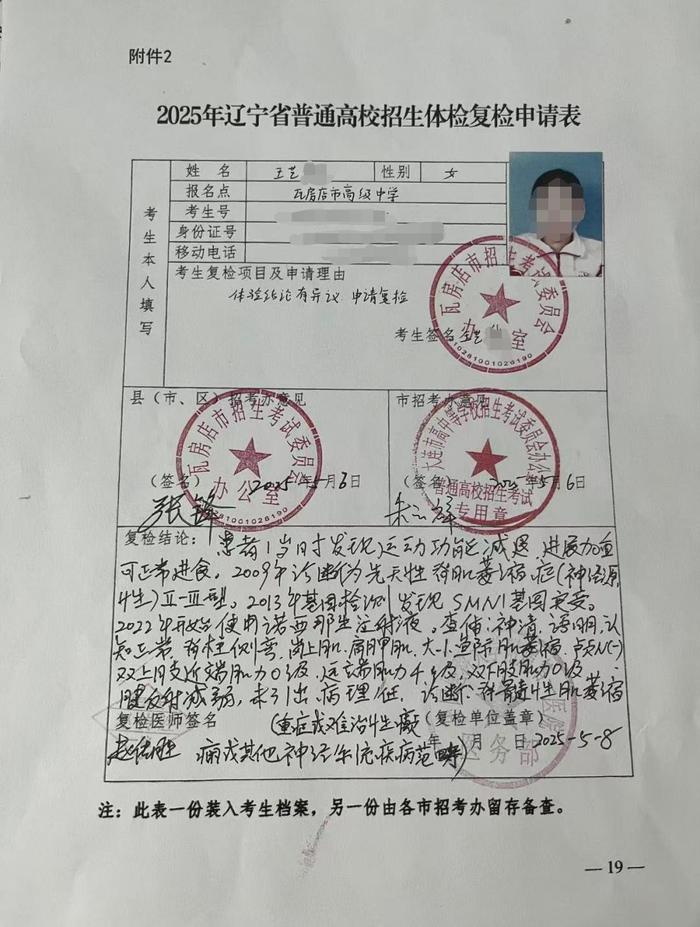 附件2
2025年辽宁省普通高校招生体检复检申请表
考生本人填写
姓名 王艺 性别 女
报名点 瓦房店市高级中学
考生号
身份证号
移动电话
考生复检项目及申请理由
体验结论有异议 申请复检
考生签名 王艺
瓦房店市招生考试委员会
办公室
210281001026190
县(市、区)招考办意见
市招考办意见
瓦房店市招生考试委员会
办公室
大连市高中等学校招生考试委员会办公
普通高校招生考试
专用章
(签名) 2025年5月6日
(签名) 2025年5月6日
张锋
复检结论: 患者1岁时发现运动功能减退,进展加重
可正常进食。2009年诊断为先天性脊肌萎缩症(神经源
性)Ⅱ-Ⅲ型。2013年基因检测发现SMN1基因突变。
2022年开始使用诺西那生注射液。查体:神清,语明,认
知正常,脊柱侧弯,岗上肌,肩胛肌,大小鱼际肌萎缩,
双上肢近端肌力0级,远端肌力4级,双下肢肌力0级.
腱反射减弱,未引出病理征. 诊断:脊髓性肌萎缩
复检医师签名 (重症或难治性癫 (复检单位盖章)
痫或其他神经系统疾病范畴) 年 月 日 2025-5-8
医务部
注:此表一份装入考生档案,另一份由各市招考办留存备查。
— 19 —